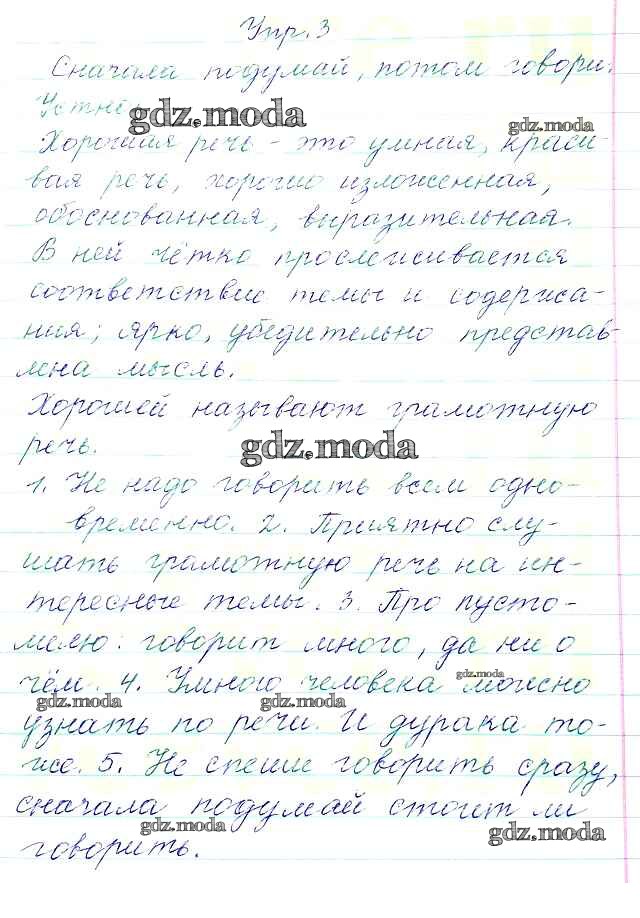 Упр. 3
Сначала подумай, потом говори.
Устно.
gdz.moda
gdz.moda
Хорошая речь - это умная, краси-
вая речь, хорошо изложенная,
обоснованная, выразительная.
В ней чётко прослеживается
соответствие темы и содержа-
ния; ярко, убедительно представ-
лена мысль.
Хорошей называют грамотную
речь.
gdz.moda
1. Не надо говорить всем одно-
временно. 2. Приятно слу-
шать грамотную речь на ин-
тересные темы. 3. Про пусто-
мелю: говорит много, да ни о
чём. 4. Умного человека можно
gdz.moda
gdz.moda
gdz.moda
узнать по речи. И дурака то-
же. 5. Не спеши говорить сразу,
сначала подумай стоит ли
gdz.moda
gdz.moda
говорить.